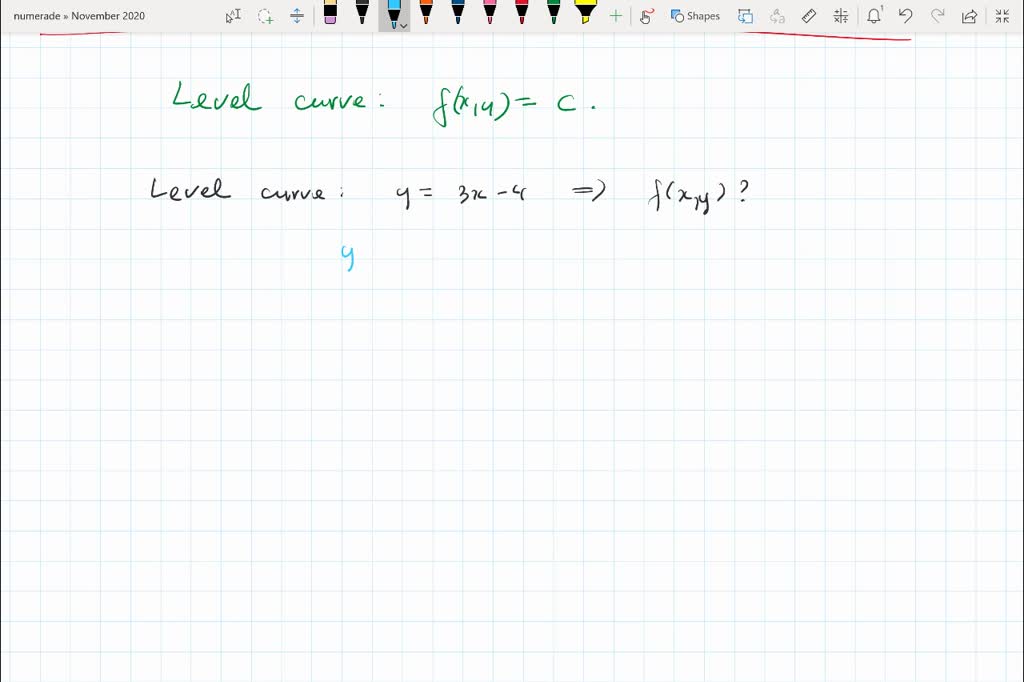 numerade » November 2020
Shapes
1
Level curve: f(x,y) = c.
Level curve: y = 3x - 4 ⇒ f(x,y)?
y